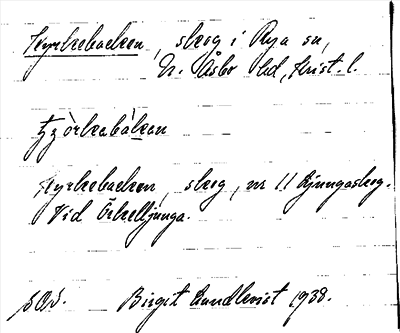 Kyrkebacken, skog i Rya sn,
N. Åsbo hd, Krist. l.
Kyrkebacken, skog, nr 11 Ljungaskog.
Vid Örkelljunga.
Birgit Sundkvist 1938.